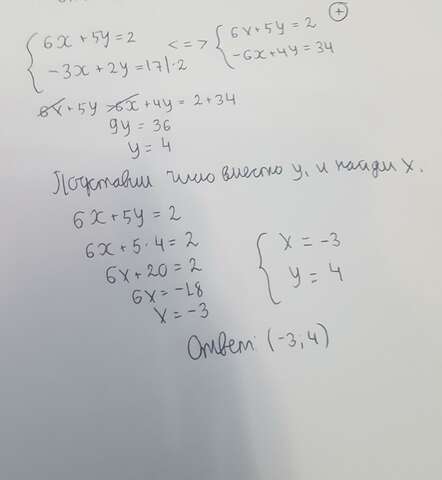 6x + 5y = 2 <=> 6x + 5y = 2 +
-3x + 2y = 17 | · 2 -6x + 4y = 34
6x + 5y - 6x + 4y = 2 + 34
9y = 36
y = 4
Подставим число вместо y, и найди x.
6x + 5y = 2
6x + 5 · 4 = 2 x = -3
6x + 20 = 2 y = 4
6x = -18
x = -3
Ответ: (-3; 4)